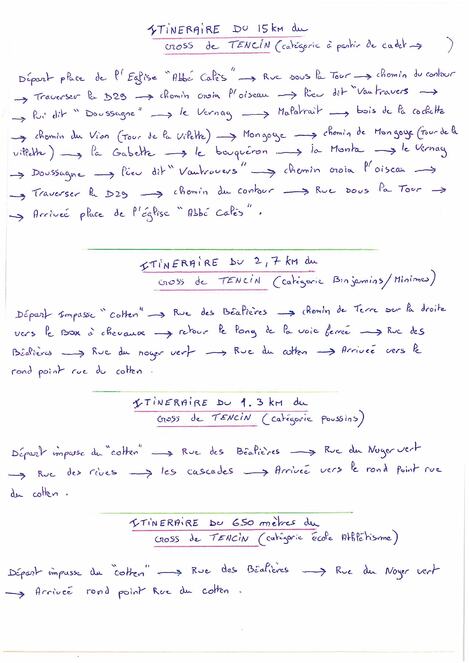 ITINERAIRE DU 15 KM du
CROSS de TENCIN (catégorie à partir de cadet →        )
Départ place de l'Eglise "Abbé Calès" → Rue sous la Tour → chemin du contour
→ Traverser la D29 → chemin croix l'oiseau → lieu dit "Vautravers"
→ lui dit "Doussagne" → le Vernay → Malatrait → bois de la cochette
→ chemin du Vion (Tour de la Vilette) → Mongoye → chemin de Mongoye (Tour de la
vilette) → la Gabette → le bouquéron → la Monta → le Vernay
→ Doussagne → lieu dit "Vautravers" → chemin croix l'oiseau →
→ Traverser la D29 → chemin du contour → Rue sous la Tour →
→ Arrivée place de l'église "Abbé Calès".
ITINERAIRE DU 2,7 KM du
CROSS de TENCIN (catégorie Binjamins/Minimes)
Départ Impasse "cotten" → Rue des Béalières → chemin de Terre sur la droite
vers le Box à chevaux → retour le long de la voie ferrée → Rue des
Béalières → Rue du noyer vert → Rue du cotten → Arrivée vers le
rond point rue du cotten.
ITINERAIRE DU 1.3 KM du
CROSS de TENCIN (catégorie poussins)
Départ impasse du "cotten" → Rue des Béalières → Rue du Noyer vert
→ Rue des rives → les cascades → Arrivée vers le rond Point rue
du cotten.
ITINERAIRE DU 650 mètres du
CROSS de TENCIN (catégorie école Athlétisme)
Départ impasse du "cotten" → Rue des Béalières → Rue du Noyer vert
→ Arrivée rond point Rue du cotten.